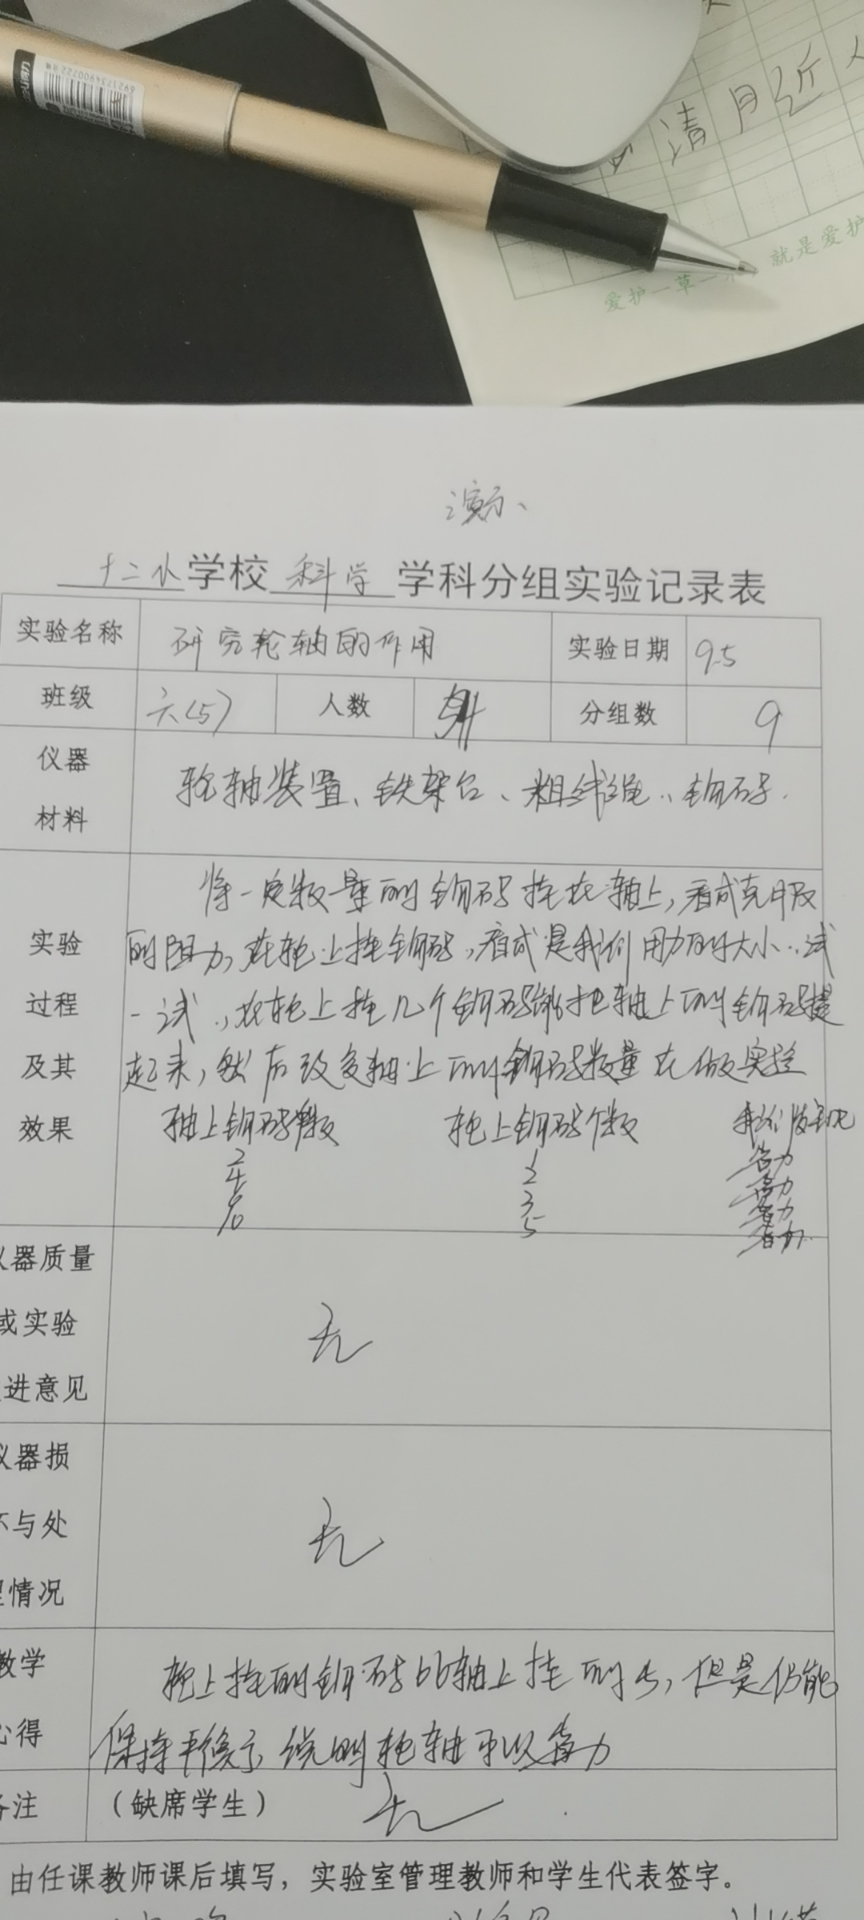 清月近人
就是爱护
爱护一草一
演示、
十二小学校 科学 学科分组实验记录表
实验名称 研究轮轴的作用 实验日期 9.5
班级 六(5) 人数 分组数 9
仪器
材料
轮轴装置、铁架台、粗线绳、钩码.
将一定数量的钩码挂在轴上,看成克服
实验 的阻力,在轮上挂钩码,看成是我们用力的大小.试
过程 一试,在轮上挂几个钩码能把轴上的钩码提
及其 起来,然后改变轴上的钩码数量在做实验
效果 轴上钩码个数 轮上钩码个数 我们发现
2 1 省力
4 2 省力
6 3 省力
10 5 省力
仪器质量
或实验 无
进意见
仪器损
与处 无
情况
教学 轮上挂的钩码比轴上挂的少,但是仍能
心得 保持平衡 说明轮轴可以省力
备注 (缺席学生) 无
由任课教师课后填写,实验室管理教师和学生代表签字。